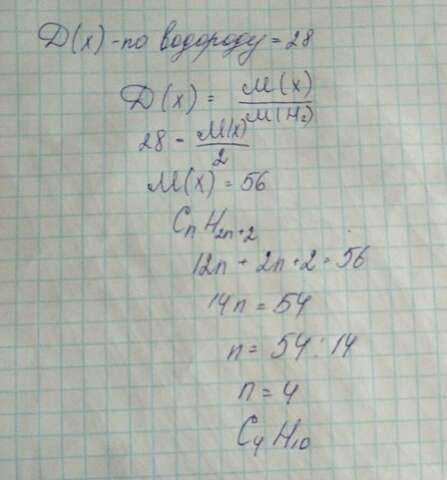 D(x) - по водороду = 28
D(x) = M(x)/M(H₂)
28 = M(x)/2
M(x) = 56
CₙH₂ₙ₊₂
12n + 2n + 2 = 56
14n = 54
n = 54 : 14
n = 4
C₄H₁₀